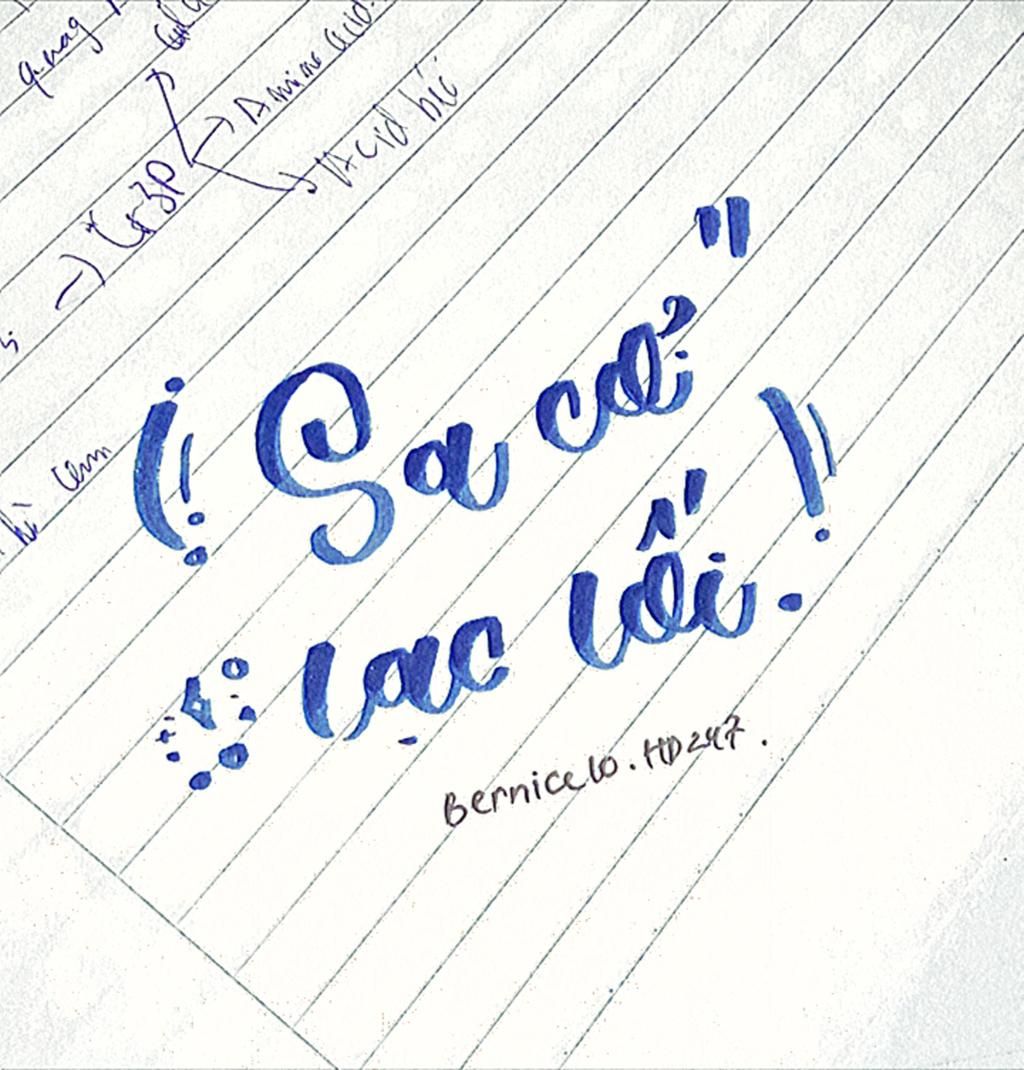 quag
→ G3P → Amino acid
→ Acid béo
Sa cơ "
lạc lối.
Bernicelo.HD247.